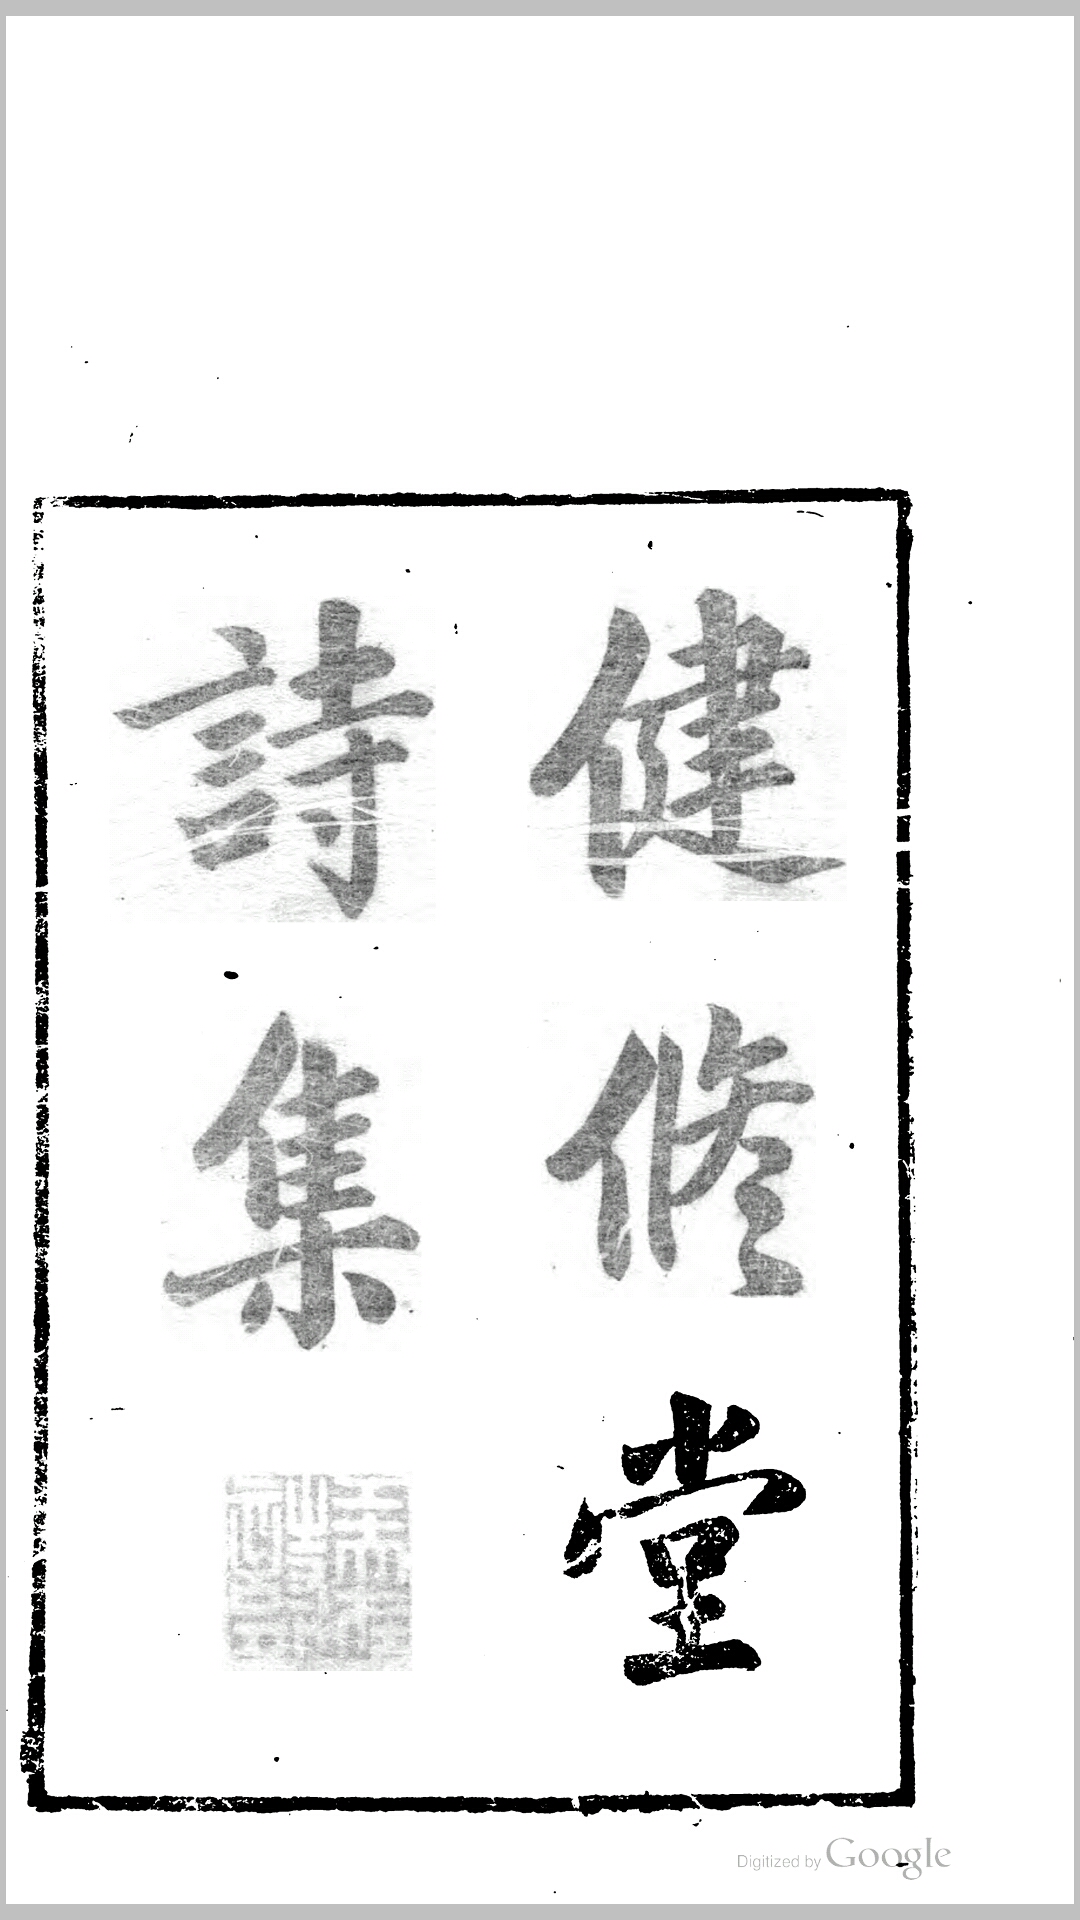 健修堂
詩集
Digitized by Google